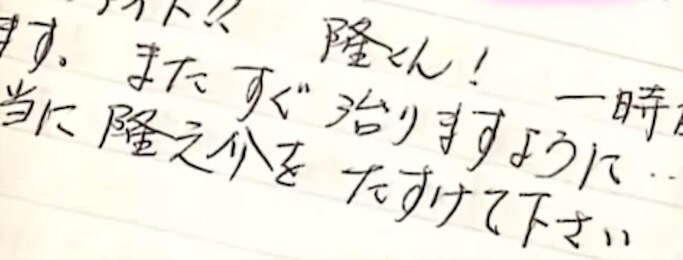 ァイト!! 隆くん! 一時
ます。またすぐ治りますように‥
当に隆之介をたすけて下さい